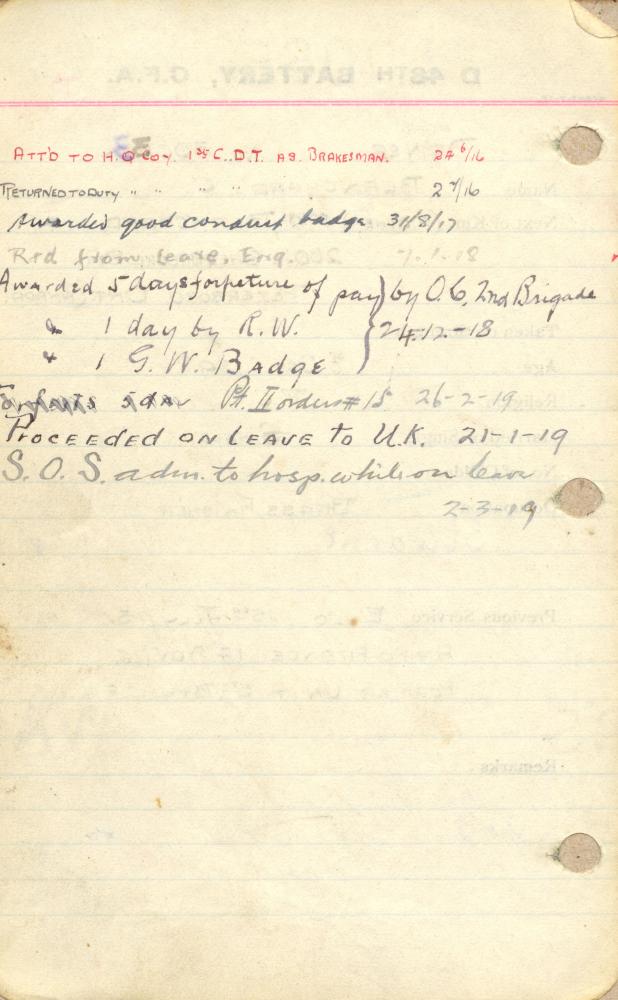 ATT'D TO H.Q COY. 1st C.D.T. AS. BRAKESMAN. 24 6/16
RETURNED TO DUTY " " " " 2 7/16
Awarded good conduct badge 31/8/17
R'td from leave, Eng. 7.1.18
Awarded 5 days forfeture of pay } by O.C. 2nd Brigade
" 1 day by R.W. } 24.12-18
" 1 G.W. BADGE
Forfeits 5 day Pt. II orders # 15 26-2-19
PROCEEDED ON LEAVE TO U.K. 21-1-19
S.O.S. adm. to hosp. while on leave
2-3-19